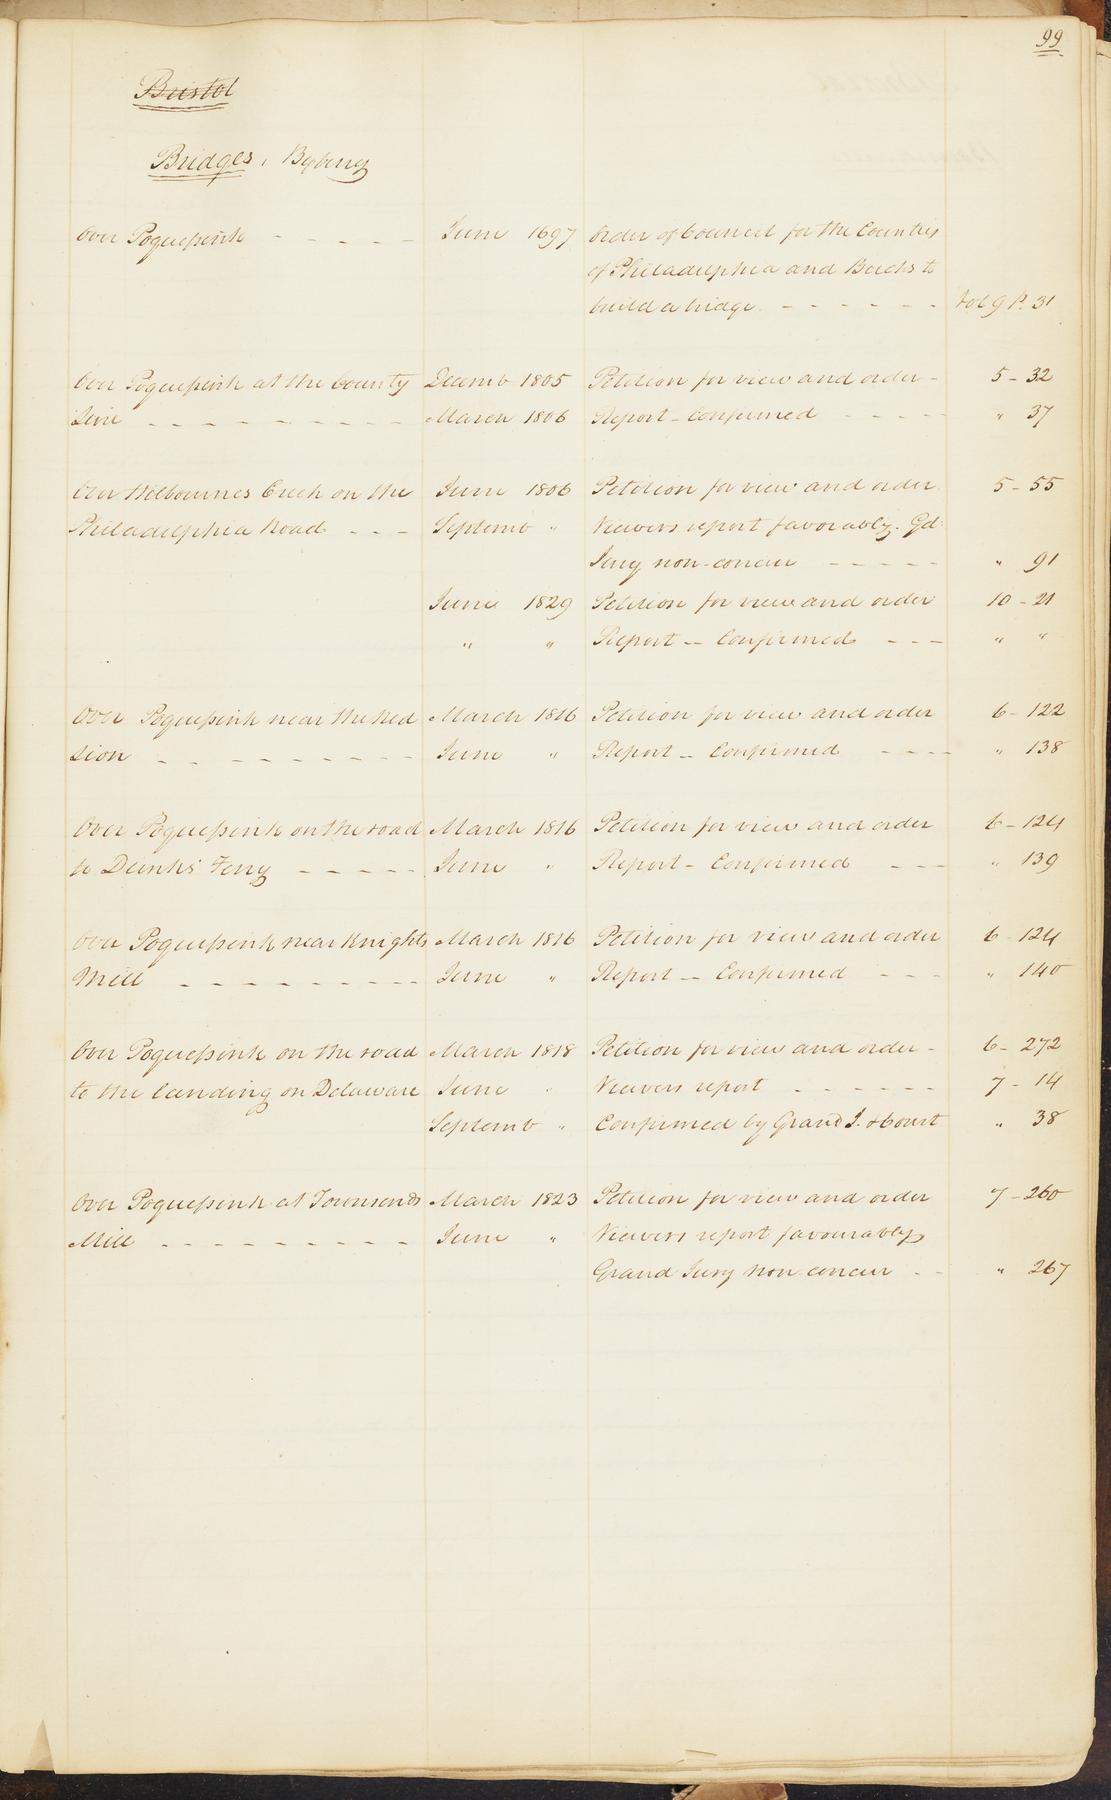 99
Bristol
Bridges, Byberry
Over Poquessink - - - - - June 1697 Order of Council for the Counties
of Philadelphia and Bucks to
build a bridge - - - - - - Vol 9 P. 31
Over Poquessink at the County Decemb 1805 Petition for view and order - 5 - 32
Line - - - - - - - - - - March 1806 Report - Confirmed - - - - " 37
Over Wilbournes Creek on the June 1806 Petition for view and order 5 - 55
Philadelphia Road - - - Septemb " Viewers report favorably. Gd
Jury non-concur - - - - - " 91
June 1829 Petition for view and order 10 - 21
" " Report -- Confirmed - - - " "
Over Poquessink near the Red March 1816 Petition for view and order 6 - 122
Lion - - - - - - - - - June " Report -- Confirmed - - - - " 138
Over Poquessink on the road March 1816 Petition for view and order 6 - 124
to Dunks' Ferry - - - - - June " Report - Confirmed - - - " 139
Over Poquessink near Knights March 1816 Petition for view and order 6 - 124
Mill - - - - - - - - - June " Report -- Confirmed - - - " 140
Over Poquessink on the road March 1818 Petition for view and order - 6 - 272
to the landing on Delaware June " Viewers report - - - - - - 7 - 14
Septemb " Confirmed by Grand J. & Court " 38
Over Poquessink at Townsends March 1823 Petition for view and order 7 - 260
Mill - - - - - - - - - June " Viewers report favourably
Grand Jury non concur - - " 267